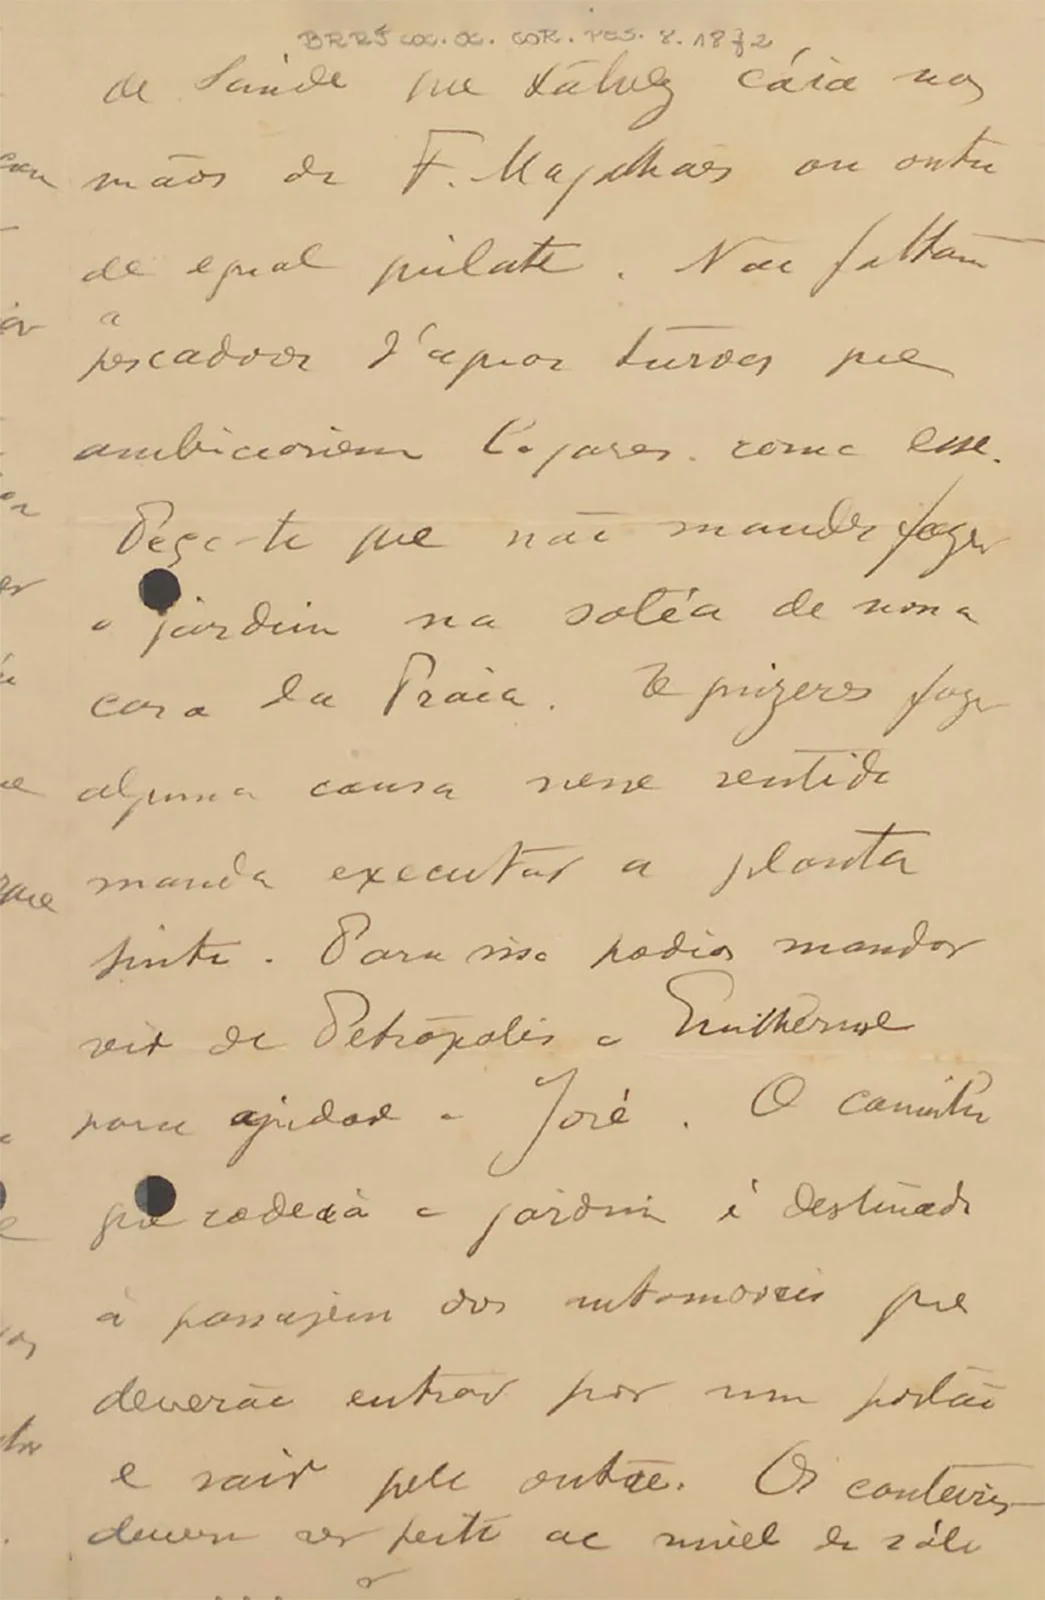 BRRJ COC. OC. COR. PES. 8. 1872
de Saúde que talvez cáia nas
mãos de F. Magalhães ou outro
de egual quilate. Não faltam
a
pescadores d'aguas turvas que
ambicionem logares como esse.
Peço-te que não mandes fazer
o jardim na sotéa de nossa
casa da Praia. Se quizeres fazer
alguma cousa nesse sentido
manda executar a planta
junta. Para isso podias mandar
vir de Petropolis o Guilherme
para ajudar o José. O caminho
que rodeia o jardim é destinado
á passagem dos automoveis que
deverão entrar por um portão
e sair pelo outro. Os canteiros
devem ser feito ao nivel do sólo